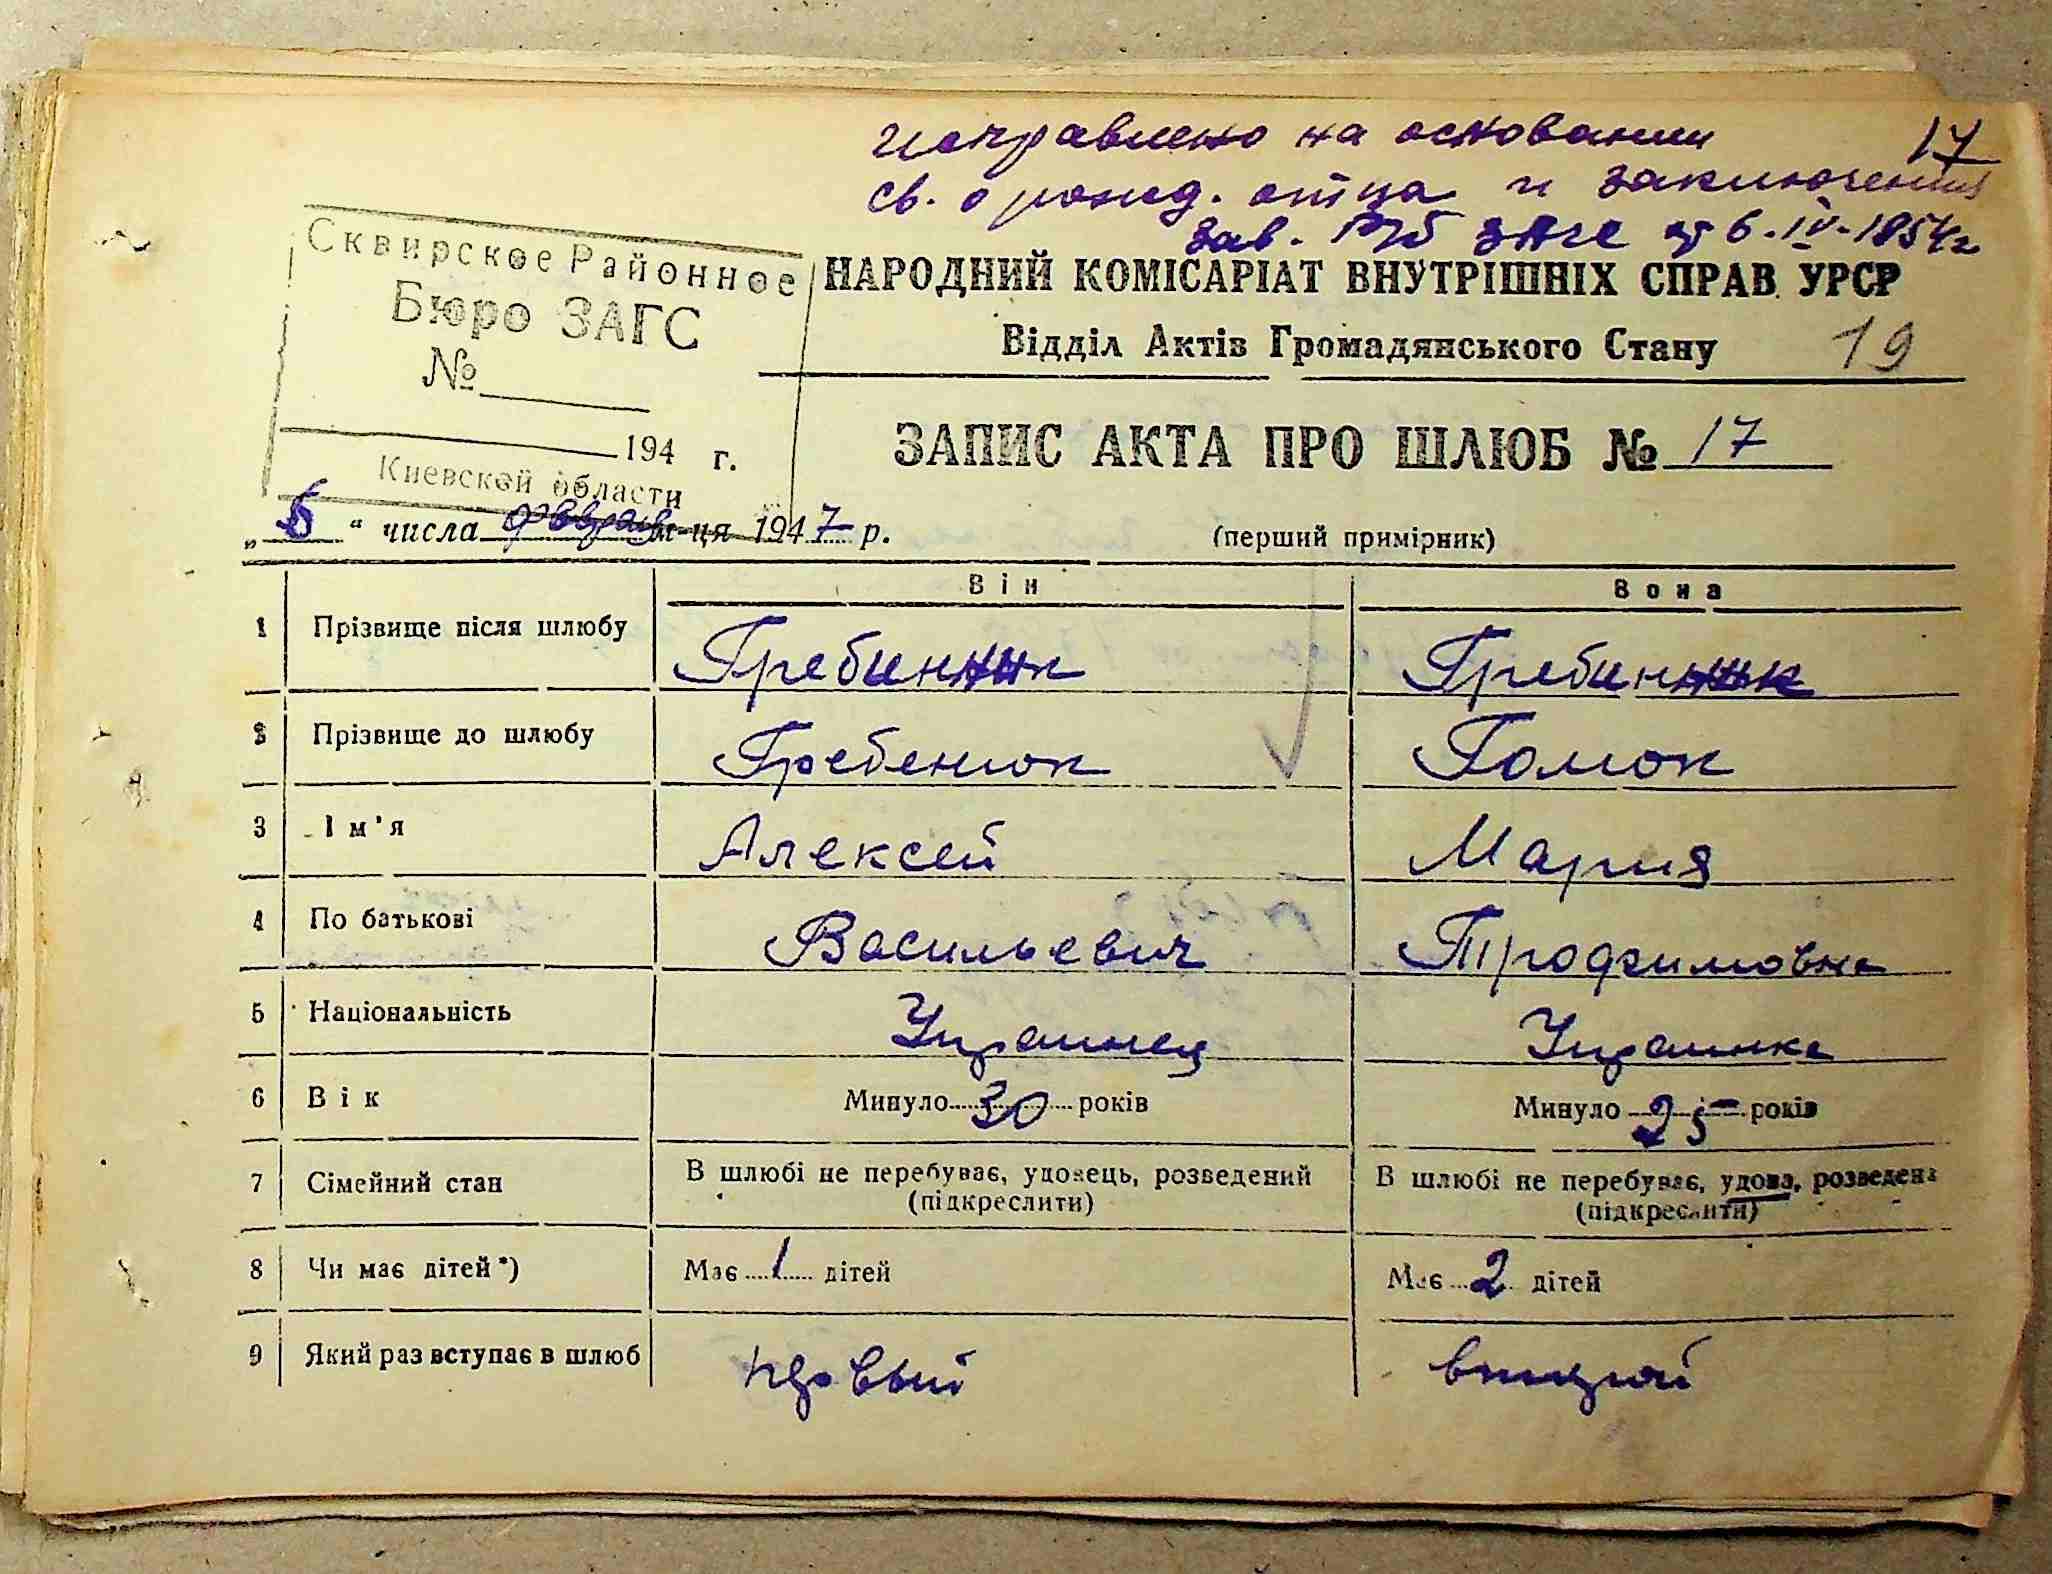 Исправлено на основании 17
св. о рожд. отца и заключения
зав. ЗАГС от 6.IV-1954 г
Сквирское Районное
Бюро ЗАГС
№
194 г.
Киевской области
НАРОДНИЙ КОМІСАРІАТ ВНУТРІШНІХ СПРАВ УРСР
Відділ Актів Громадянського Стану 19
ЗАПИС АКТА ПРО ШЛЮБ № 17
„ 6 “ числа феврал м-ця 1947 р. (перший примірник)
Він Вона
1 Прізвище після шлюбу Гребинник Гребинник
2 Прізвище до шлюбу Гребенюк Гомон
3 Ім'я Алексей Мария
4 По батькові Васильевич Трофимовна
5 Національність Украинец Украинка
6 Вік Минуло 30 років Минуло 25 років
7 Сімейний стан В шлюбі не перебуває, удовець, розведений В шлюбі не перебуває, удова, розведена
(підкреслити) (підкреслити)
8 Чи має дітей *) Має 1 дітей Має 2 дітей
9 Який раз вступає в шлюб первый второй